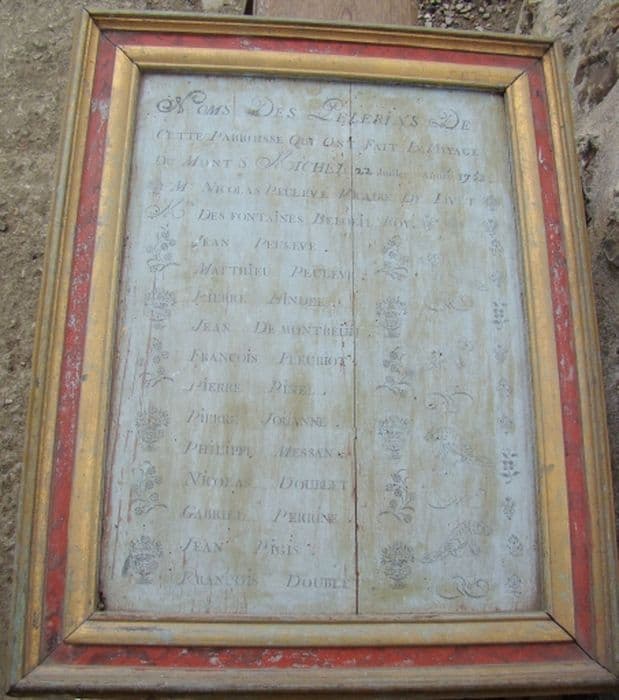 NOMS DES PELERINS DE
CETTE PARROISSE QUI ONT FAIT LE VOYAGE
DU MONT S. MICHEL 22 Juillet
Mr NICOLAS PEULEVE VICAIRE DE LIVET
Mr DES FONTAINES BELOEIL ROY.
JEAN PEULEVE.
MATTHIEU PEULEVE.
PIERRE ANDEE.
JEAN DE MONTREUIL
FRANCOIS FLEURIOT.
PIERRE PINEL.
PIERRE JOUANNE.
PHILIPPE MESSANT
NICOLAS DOUBLET
GABRIEL PERRINE.
JEAN PIGIS.
FRANCOIS DOUBLET